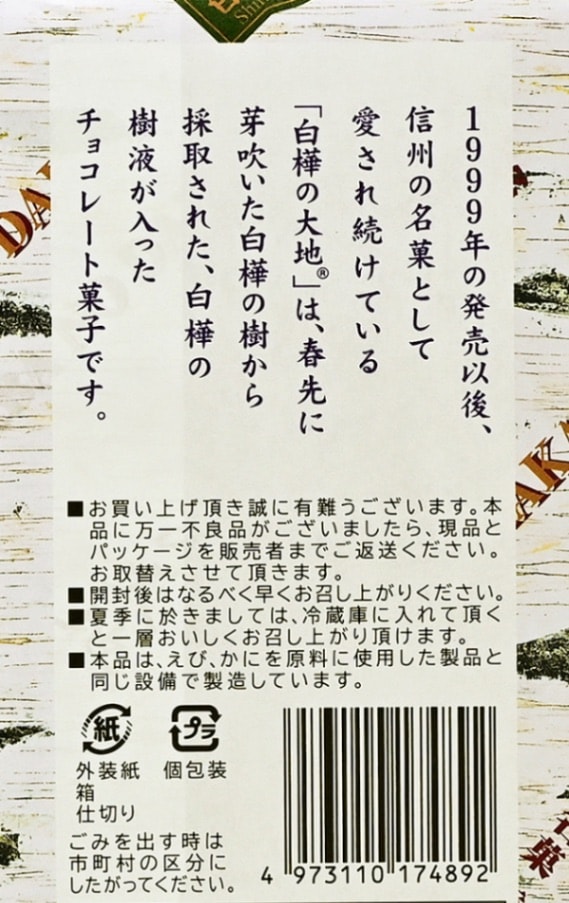 1999年の発売以後、
信州の名菓として
愛され続けている
「白樺の大地®」は、春先に
芽吹いた白樺の樹から
採取された、白樺の
樹液が入った
チョコレート菓子です。
■お買い上げ頂き誠に有難うございます。本
品に万一不良品がございましたら、現品と
パッケージを販売者までご返送ください。
お取替えさせて頂きます。
■開封後はなるべく早くお召し上がりください。
■夏季に於きましては、冷蔵庫に入れて頂く
と一層おいしくお召し上がり頂けます。
■本品は、えび、かにを原料に使用した製品と
同じ設備で製造しています。
紙
プラ
外装紙
箱
仕切り
個包装
ごみを出す時は
市町村の区分に
したがってください。
4 973110 174892